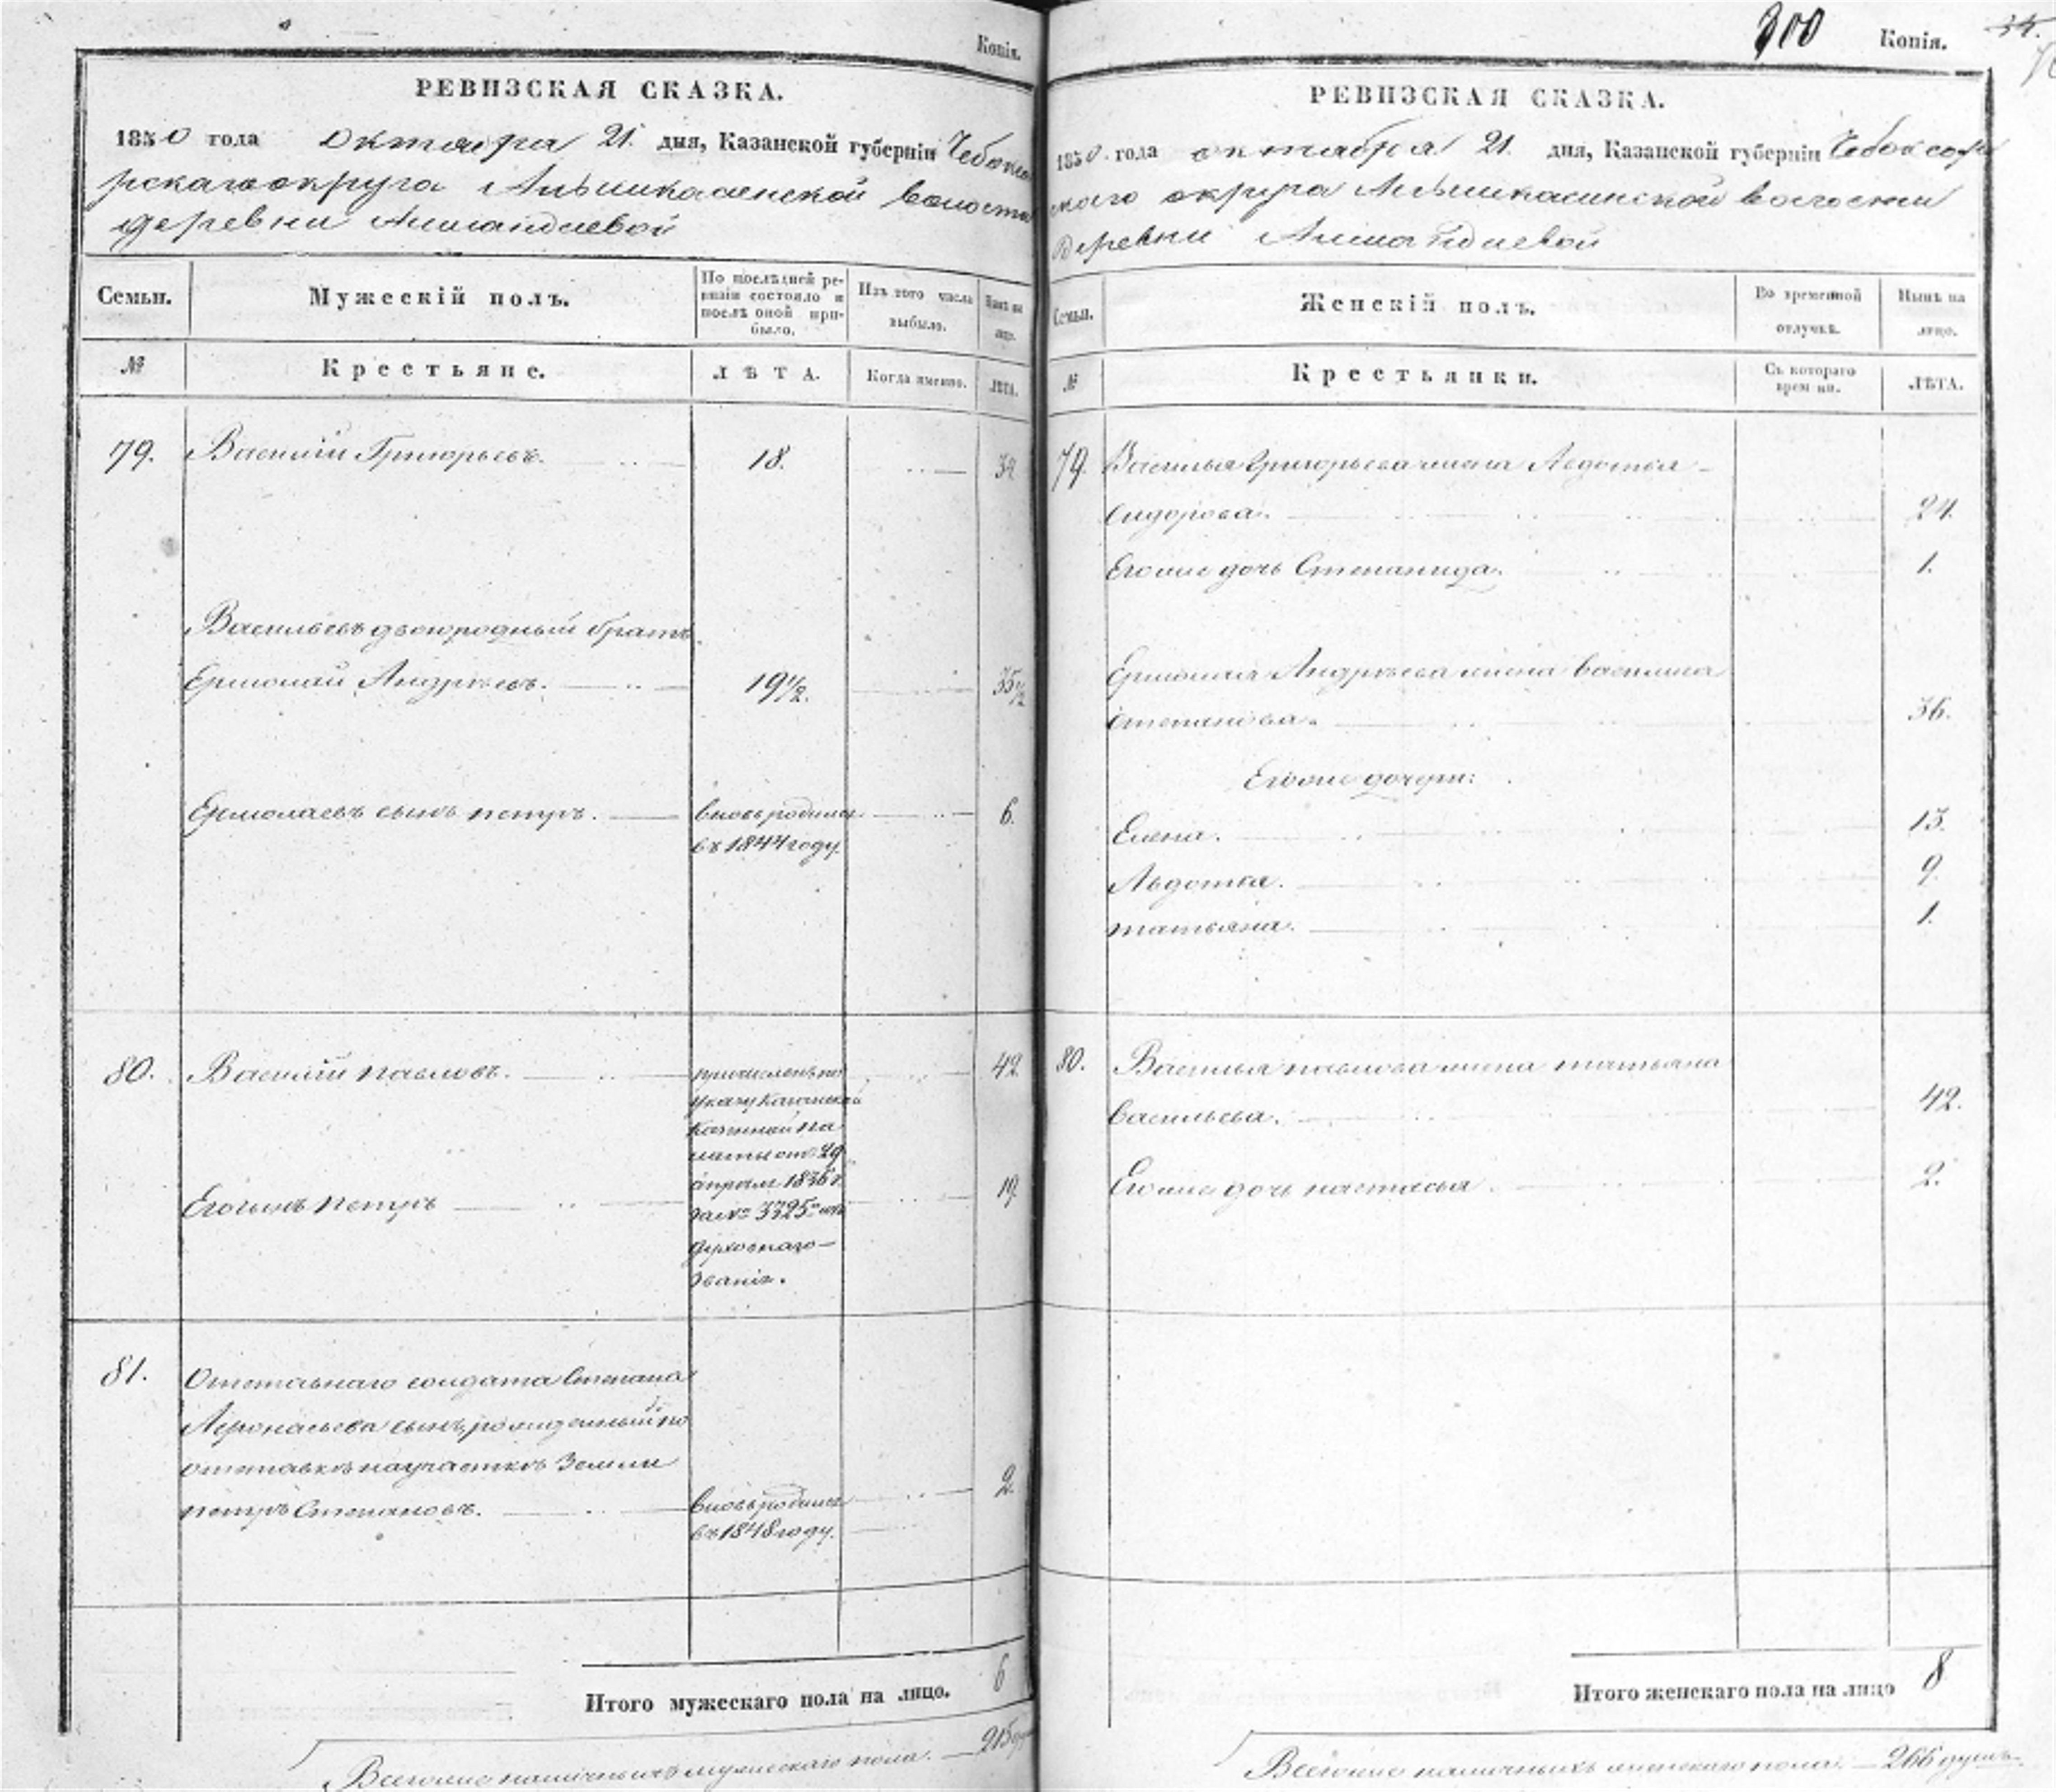 Копія.
РЕВИЗСКАЯ СКАЗКА.
1850 года Октября 21. дня, Казанской губерніи Чебокса
рскаго округа волости
деревни
Семьи.
Мужескій полъ.
По послѣдней ре-
визіи состояло и
послѣ оной при-
было.
Изъ того числа
выбыло.
Нынѣ на
лицо.
№
Крестьяне.
ЛѢТА.
Когда именно.
ЛѢТА.
79. Василій Григорьевъ. 18. 34
Васильевъ двоюродный братъ
Ермолай Андреевъ. 19½. 35½
Ермолаевъ сынъ петръ. вновь родился 6.
въ 1844 году.
80. Василій павловъ. причисленъ по 42.
указу Казанской
казенной па
латы от 29
апреля 1836 г.
Его сынъ петръ за № 3325 изъ 19.
духовнаго
званія.
81. Отставнаго солдата Степана
сынъ, рожденный по
отставкѣ на участкѣ земли
петръ Степановъ. вновь родился 2.
въ 1848 году.
Итого мужескаго пола на лицо. 6
Всего наличныхъ мужескаго пола. — 215
300 Копія. 34.
РЕВИЗСКАЯ СКАЗКА.
1850. года октября 21. дня, Казанской губерніи Чебоксар
скаго округа волости
деревни
Семьи.
Женскій полъ.
Во временной
отлучкѣ.
Нынѣ на
лицо.
№
Крестьянки.
Съ котораго
времени.
ЛѢТА.
79. Василья Григорьева жена Авдотья
Сидорова. 24.
Его же дочь Степанида. 1.
Ермолая Андреева жена василиса
степанова. 36.
Его же дочери:
Елена. 13.
Авдотья. 9.
татьяна. 1.
80. Василья павлова жена татьяна
васильева. 42.
Его же дочь настасья. 2.
Итого женскаго пола на лицо 8
Всего наличныхъ женскаго пола. — 266 душъ.